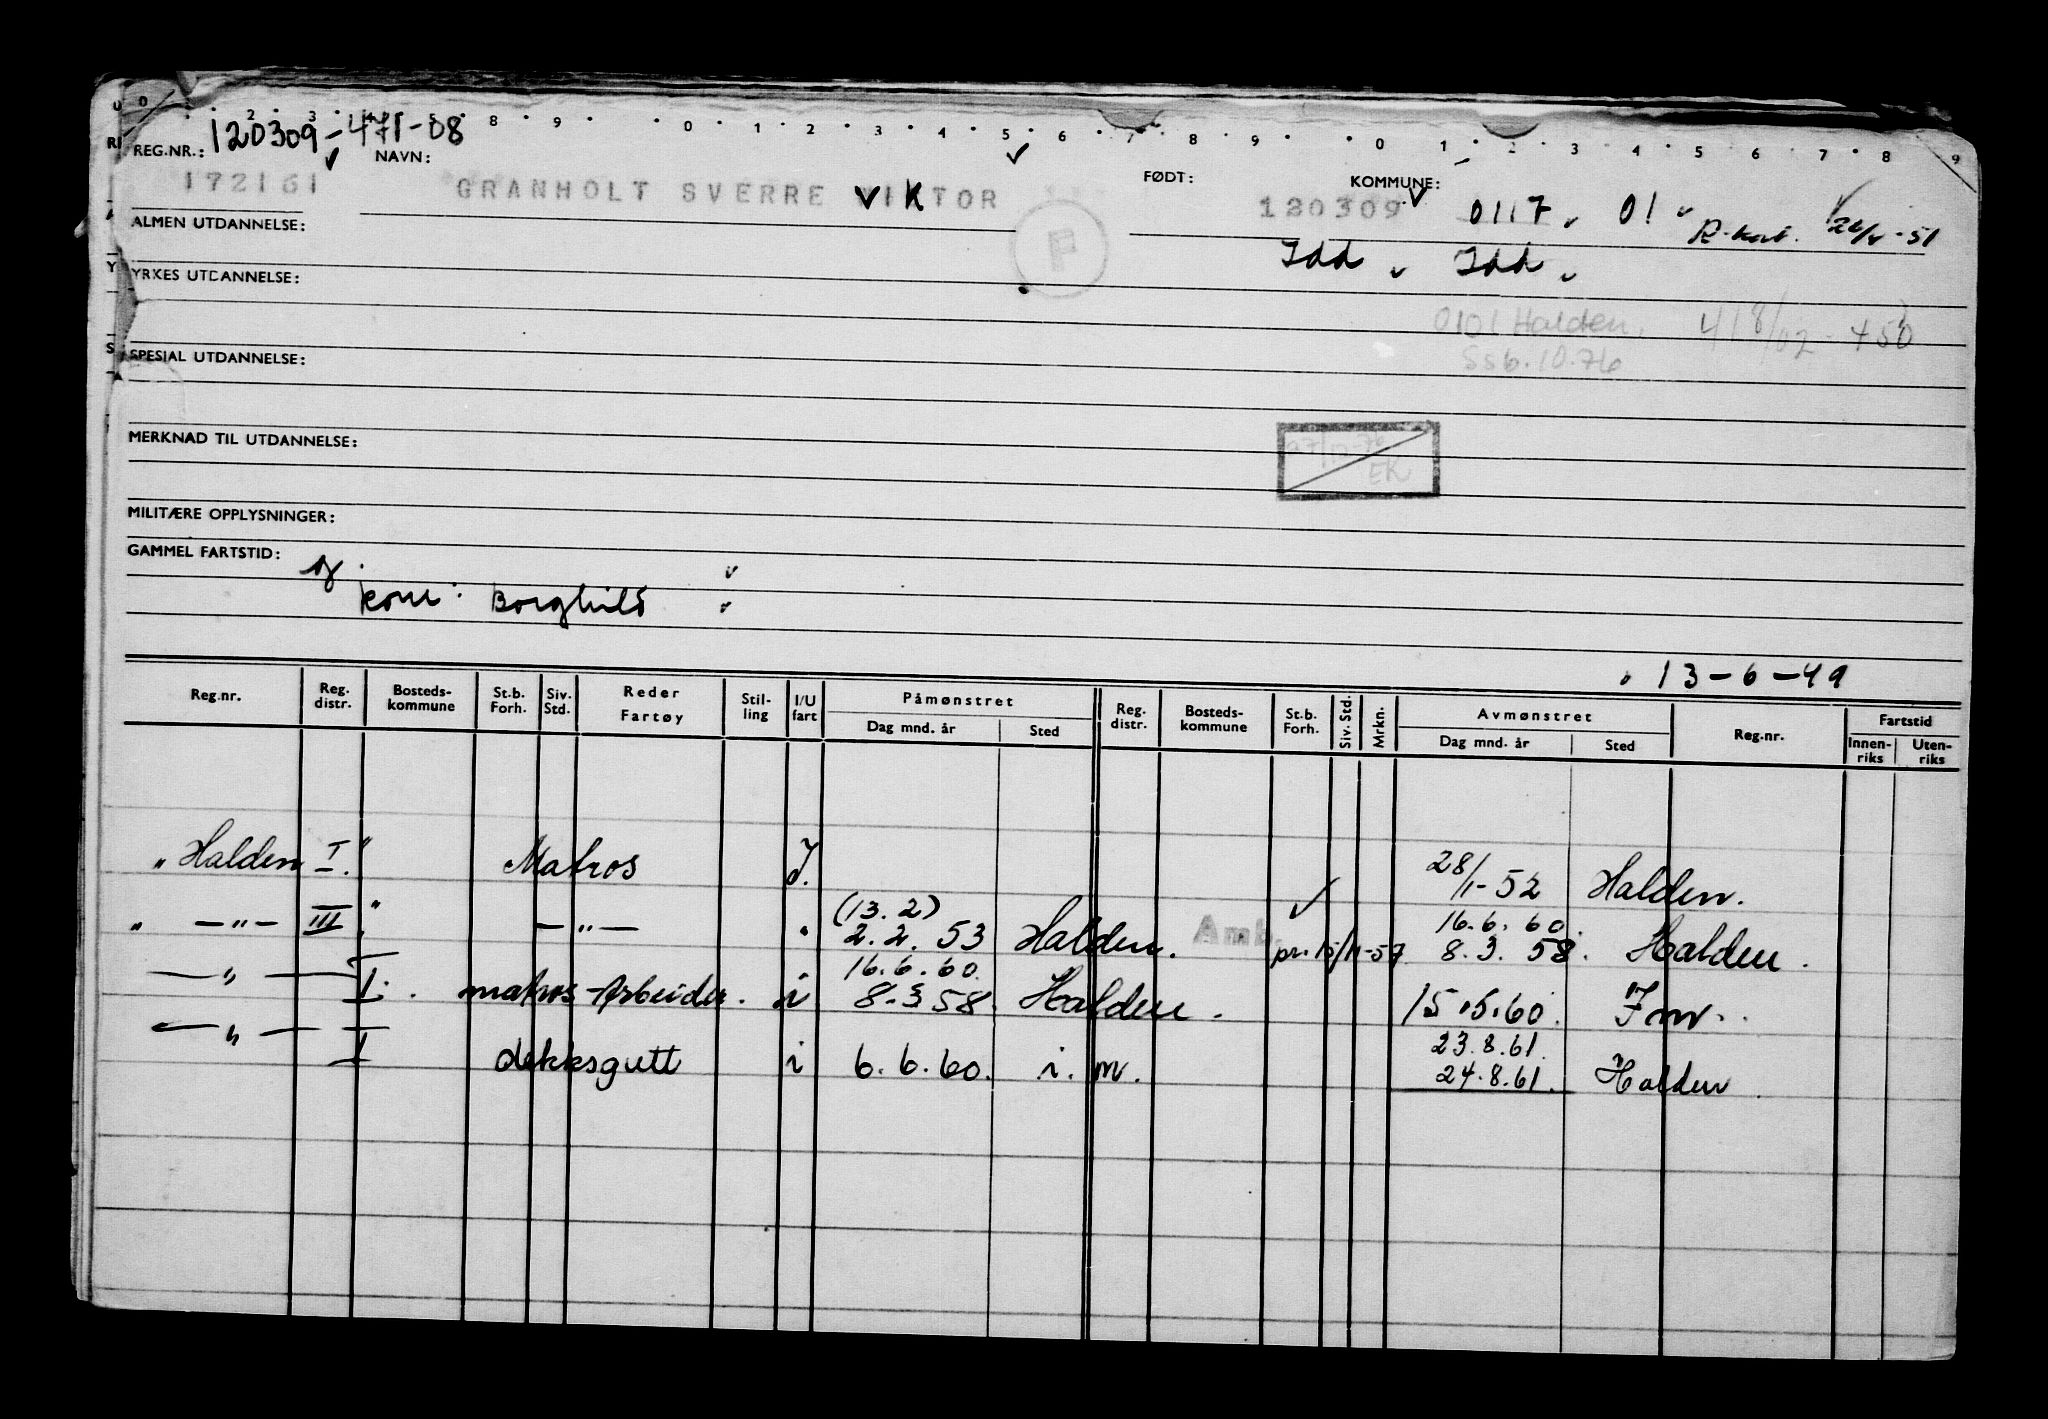 U 0 2 3 4 8 9 0 1 2 3 4 5 6 7 8 9 0 1 2 3 4 5 6 7 8 9
REG.NR.: 120309-471-08
172161
NAVN:
GRANHOLT SVERRE VIKTOR
FØDT:
120309
KOMMUNE:
0117 01
Idd Idd
ALMEN UTDANNELSE:
YRKES UTDANNELSE:
0101 Halden, 418/02-450
Ssb.10.76
SPESIAL UTDANNELSE:
MERKNAD TIL UTDANNELSE:
EK
MILITÆRE OPPLYSNINGER:
GAMMEL FARTSTID:
g.
kone: Borghild
13-6-49
Reg.nr. Reg. distr. Bosteds- kommune St.b. Forh. Siv. Std. Reder Fartøy Stil- ling I/U fart Påmønstret Dag mnd. år Sted Reg. distr. Bosteds- kommune St.b. Forh. Siv. Std. Mrkn. Avmønstret Dag mnd. år Sted Reg.nr. Fartstid Innen- riks Uten- riks
"Halden I" Matros I. 28/1-52 Halden.
(13.2) 16.6.60.
" —"— III" —"— 2.2.53 Halden. Amb. pr. 15/11-57 8.3.58. Halden.
16.6.60.
—"— I. matros-Arbeider. i 8.3 58. Halden. 15.5.60. Im.
23.8.61.
—"— I dekksgutt i 6.6.60. i.m. 24.8.61. Halden